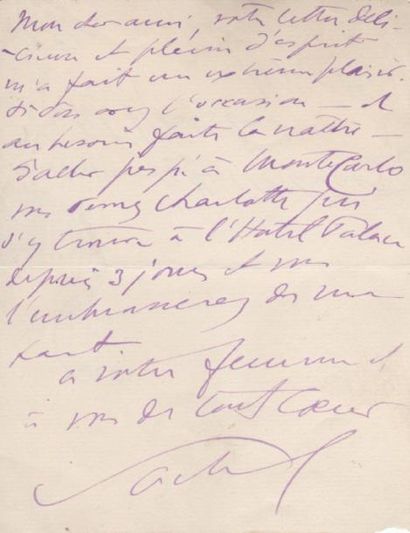 Mon cher ami, votre lettre déli-
-cieuse et pleine d'esprit
m'a fait un extrême plaisir.
Si vous avez l'occasion — et
au besoin faites la naître —
d'aller jusqu'à Monte Carlo
vous verrez Charlotte qui
s'y trouve à l'Hotel Palace
depuis 3 jours et vous
l'embrasserez de ma
part
à votre femme et
à vous de tout Cœur
Sacha